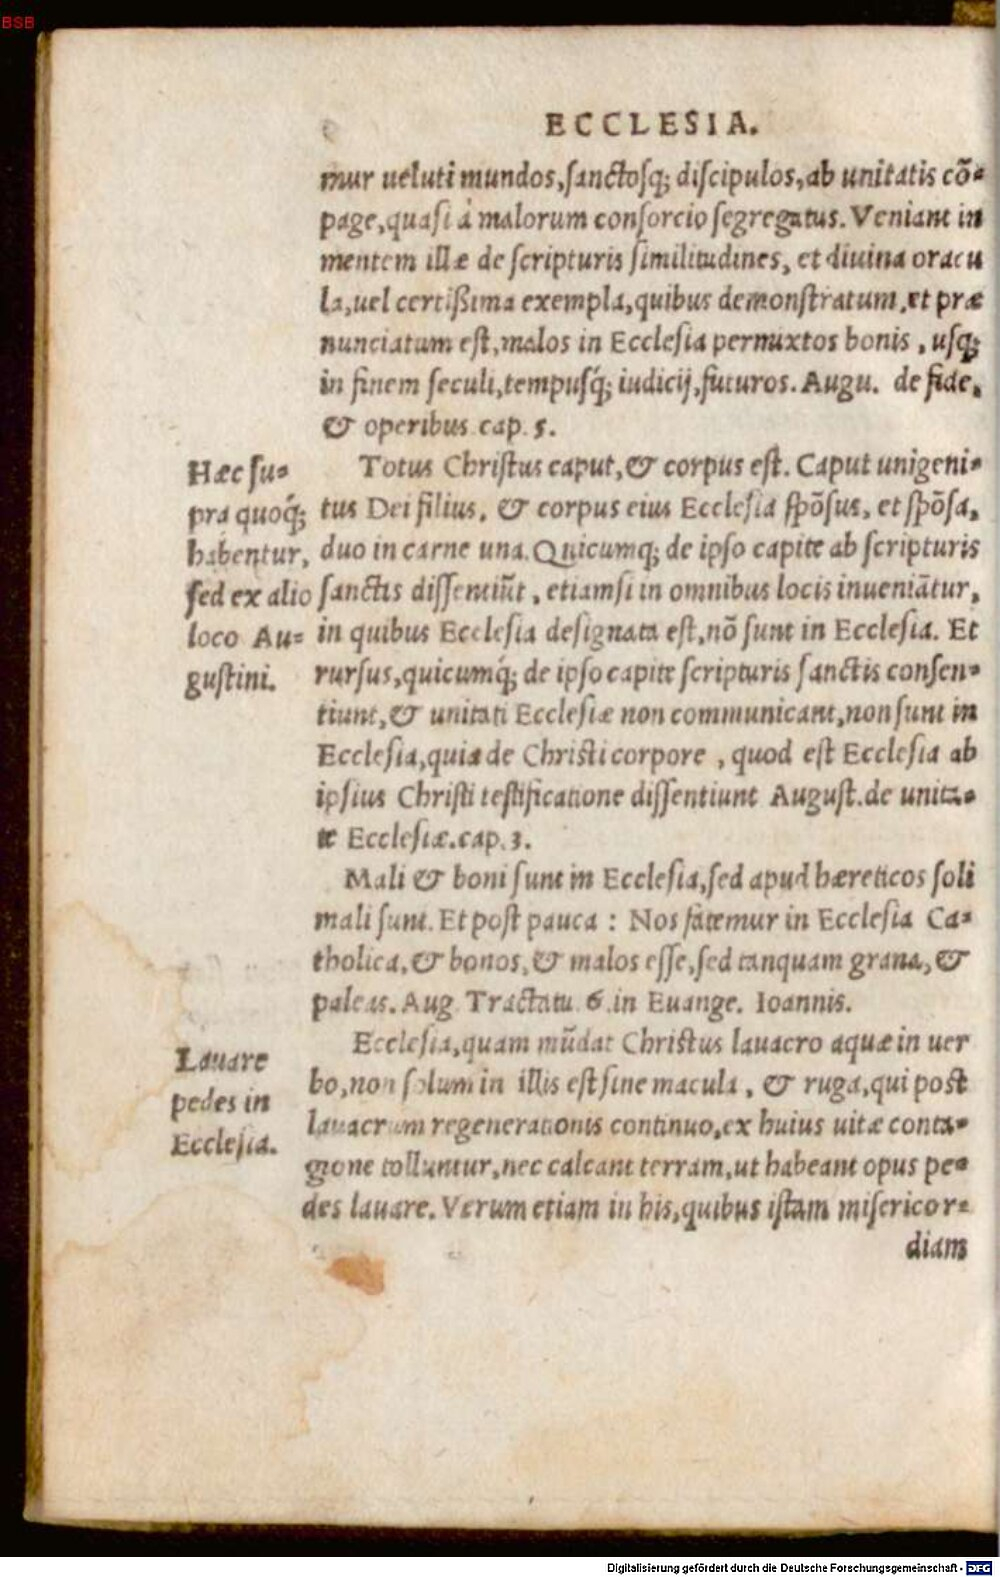 BSB
ECCLESIA.
mur ueluti mundos, sanctosq; discipulos, ab unitatis cõ=
page, quasi à malorum consorcio segregatus. Veniant in
mentem illæ de scripturis similitudines, et diuina oracu
la, uel certißima exempla, quibus demonstratum, et præ
nunciatum est, malos in Ecclesia permixtos bonis, usq;
in finem seculi, tempusq́; iudicij, futuros. Augu. de fide,
& operibus cap. 5.
Hæc su=
pra quoq́;
habentur,
sed ex alio
loco Au=
gustini.
Totus Christus caput, & corpus est. Caput unigeni=
tus Dei filius, & corpus eius Ecclesia spõsus, et spõsa,
duo in carne una. Quicumq; de ipso capite ab scripturis
sanctis dissentiũt, etiamsi in omnibus locis inueniãtur,
in quibus Ecclesia designata est, nõ sunt in Ecclesia. Et
rursus, quicumq́; de ipso capite scripturis sanctis consen=
tiunt, & unitati Ecclesiæ non communicant, non sunt in
Ecclesia, quia de Christi corpore, quod est Ecclesia ab
ipsius Christi testificatione dissentiunt August. de unita=
te Ecclesiæ. cap. 3.
Mali & boni sunt in Ecclesia, sed apud hæreticos soli
mali sunt. Et post pauca: Nos fatemur in Ecclesia Ca=
tholica, & bonos, & malos esse, sed tanquam grana, &
paleas. Aug. Tractatu. 6. in Euange. Ioannis.
Lauare
pedes in
Ecclesia.
Ecclesia, quam mũdat Christus lauacro aquæ in uer
bo, non solum in illis est sine macula, & ruga, qui post
lauacrum regenerationis continuo, ex huius uitæ conta=
gione tolluntur, nec calcant terram, ut habeant opus pe=
des lauare. Verum etiam in his, quibus istam misericor=
diam
Digitalisierung gefördert durch die Deutsche Forschungsgemeinschaft - DFG